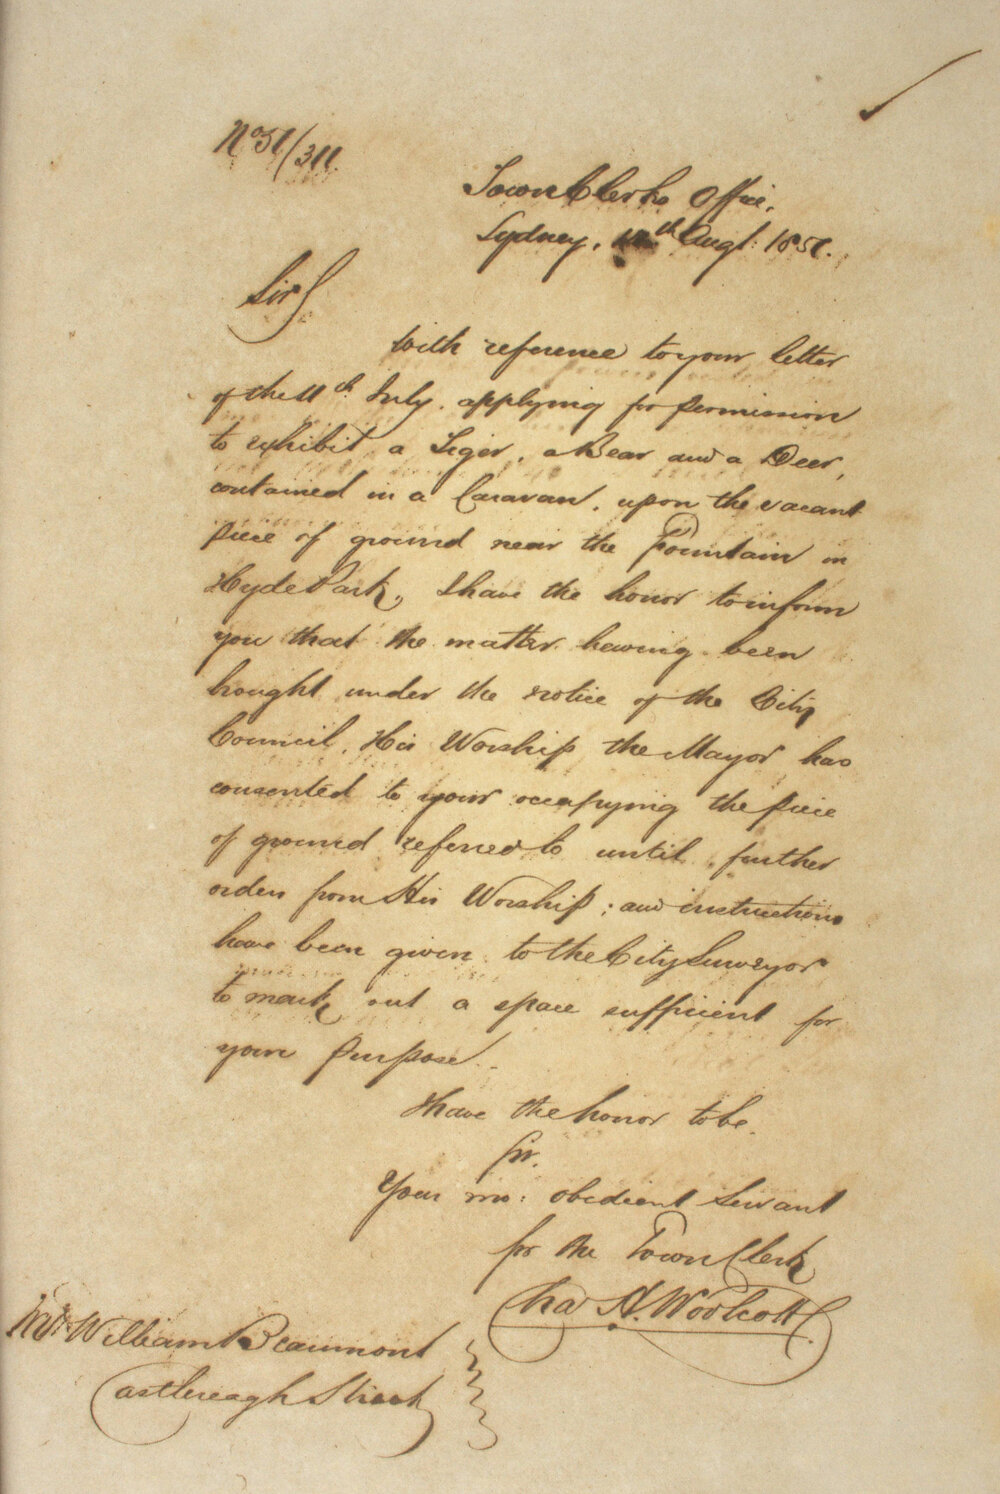 No 51/311
Town Clerks Office,
Sydney, th Augt: 1851.
Sir,
With reference to your letter
of the 11th July, applying for permission
to exhibit a Tiger, a Bear and a Deer,
contained in a Caravan, upon the vacant
piece of ground near the Fountain in
Hyde Park, I have the honor to inform
you that the matter having been
brought under the notice of the City
Council, His Worship the Mayor has
consented to your occupying the piece
of ground referred to until further
orders from His Worship; and instructions
have been given to the City Surveyor
to mark out a space sufficient for
your purpose.
I have the honor to be,
Sir,
Your mo: obedient Servant
for the Town Clerk
Chas H. Woolcott
Mr William Beaumont
Castlereagh Street